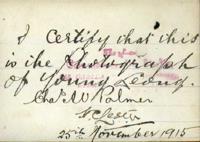 I Certify that this
is the Photograph
of Young Leong.
Chas. W Palmer
25th November 1915